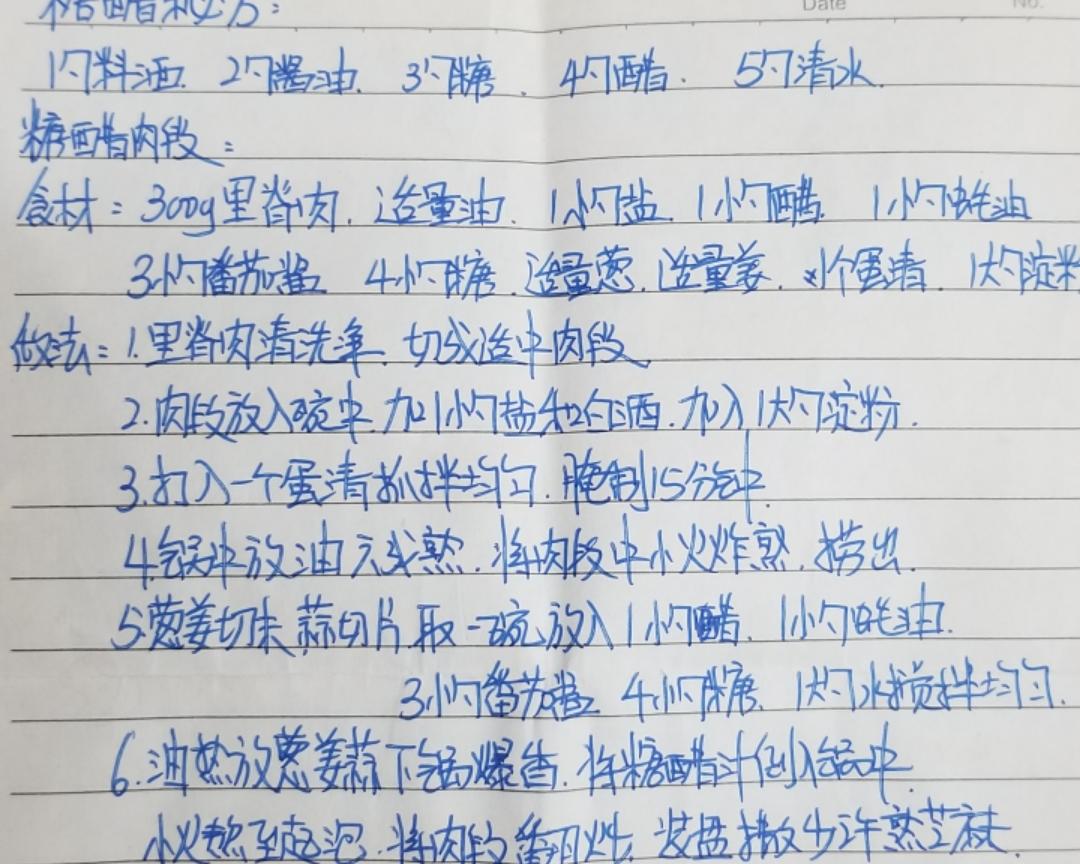 Date No.
糖醋酱秘方：
1勺料酒 2勺酱油 3勺糖 . 4勺醋 . 5勺清水
糖醋肉段：
食材：300g里脊肉. 适量油. 1小勺盐 1小勺醋. 1小勺蚝油
3小勺番茄酱 4小勺糖. 适量葱. 适量姜. 1个蛋清. 1大勺淀粉
做法：1.里脊肉清洗净. 切成适中肉段.
2.肉段放入碗中. 加1小勺盐和2勺酒. 加入1大勺淀粉.
3.打入一个蛋清抓拌均匀. 腌制15分钟.
4.锅中放油六成熟. 将肉段中小火炸熟. 捞出.
5.葱姜切末 蒜切片.取一碗.放入1小勺醋. 1小勺蚝油.
3小勺番茄酱. 4小勺糖. 1大勺水搅拌均匀.
6.油热放葱姜蒜下锅爆香. 将糖醋汁倒入锅中.
小火熬至起泡. 将肉段翻炒. 装盘撒少许熟芝麻.